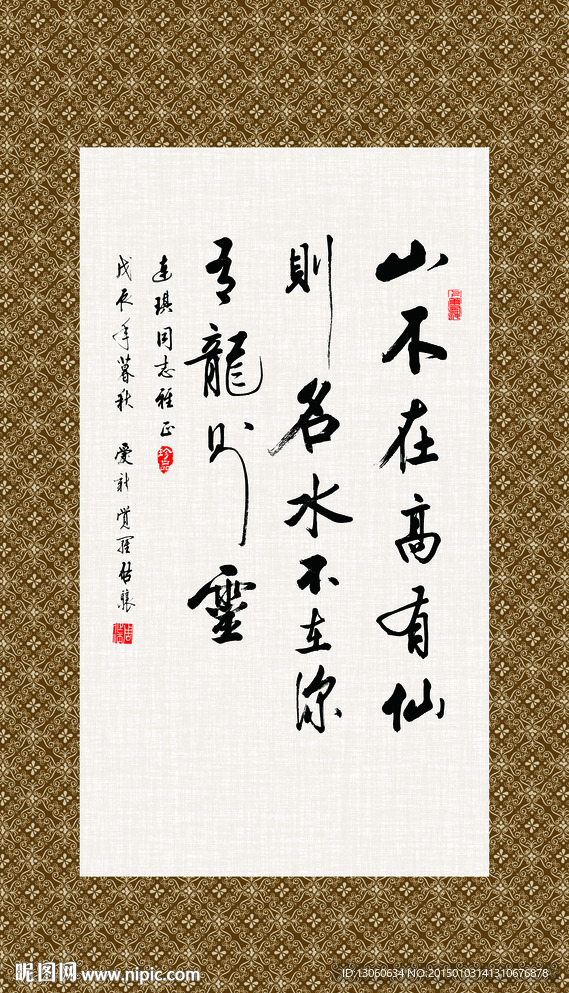 山不在高有仙
則名水不在深
有龍則靈
連琪同志雅正
珍品
戊辰年暮秋 愛新覺羅啓驤
昵图网 www.nipic.com
ID:13060634 NO:20150103141310676878